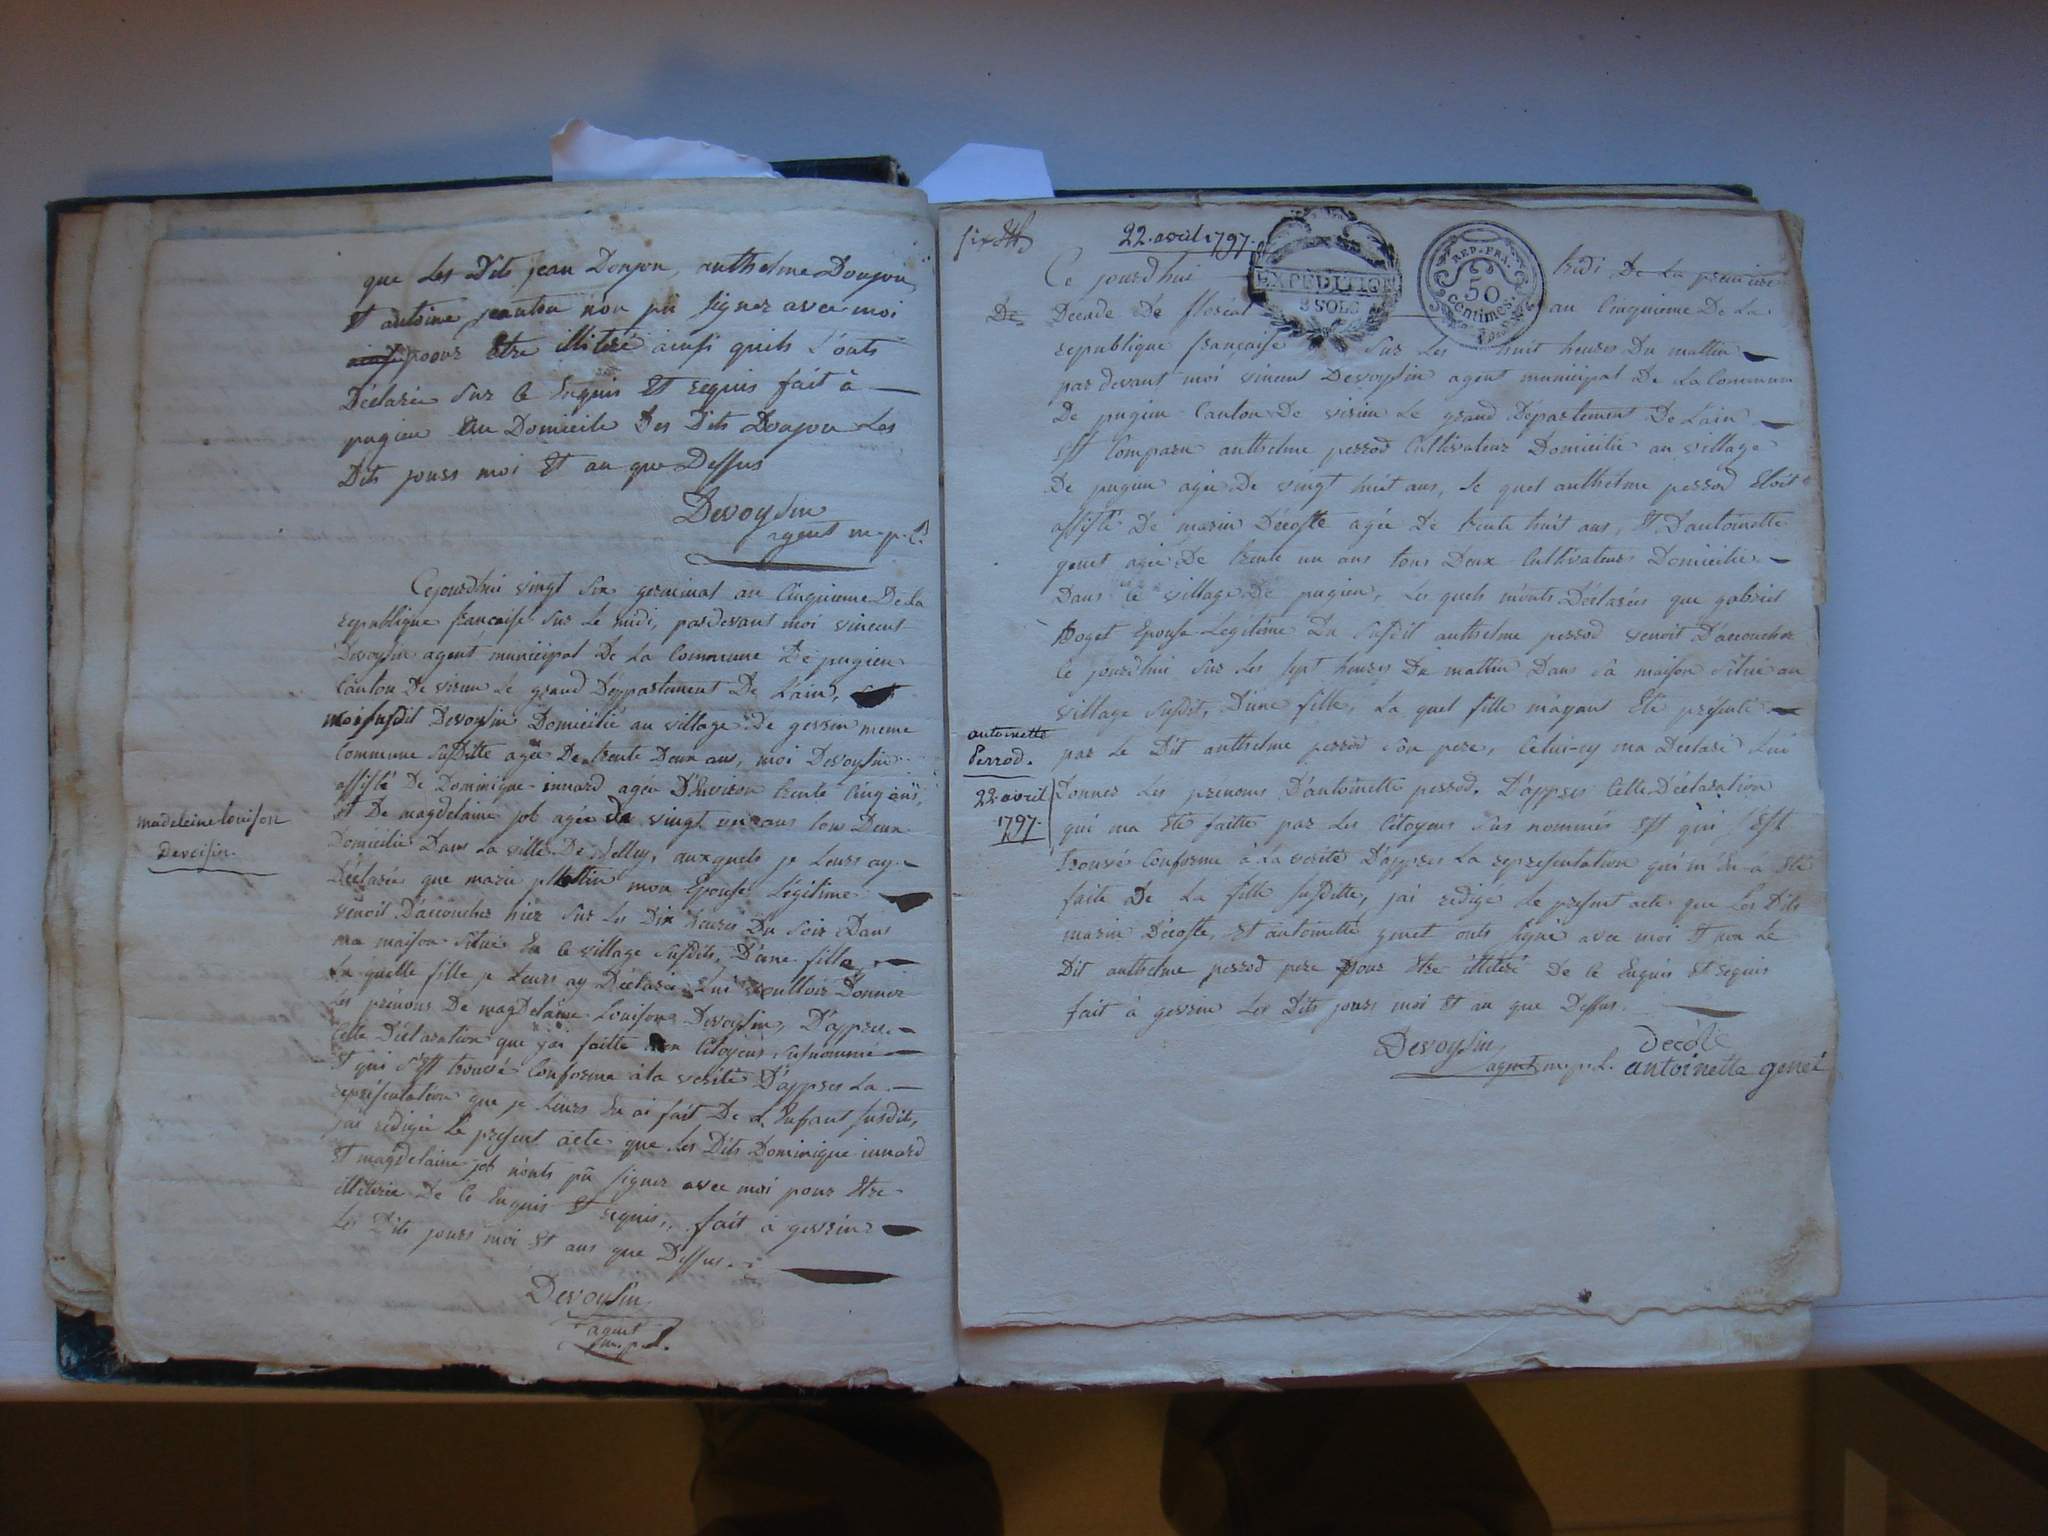 que Les Dits jean Donjon, anthelme Donjon
Et antoine jeanton non pû Signer avec moi
pour Etre illiteré ainsi quils L'onts
Déclaré Sur Ce Enquis Et requis fait à
pugieu Au Domicile Des Dits Donjon Les
Dits jours moi Et an que Dessus
Devoysin
agent m.p.l.
Cejourdhui vingt Six germinal an Cinquieme De la
republique francaise Sur Le midi, pardevant moi vincent
Devoysin agent municipal De La Commune De pugieu
Canton De virieu Le grand Département De Lain,
moi susdit Devoysin Domicilié au village de gevrin meme
Commune Susditte agée De trente Deux ans, moi Devoysin
assisté De Dominique innard agée D'Environ trente Cinq ans,
Et De magdelaine job agée De vingt un ans tous Deux
madeleine louison
Devoisin.
Domicilié Dans La ville De Belley, auxquels je Leurs ay
Déclarée que marie mon Epouse Légitime
venoit D'accoucher hier Sur Les Dix heures Du Soir Dans
ma maison Situé En Ce village Susdits, D'une fille,
La quelle fille je Leurs ay Déclaré Lui voulloir Donner
Les prénoms De magdelaine Louison Devoysin, D'apprès
Cette Déclaration que j'ai faitte aux Citoyens Susnommé
Et qui S'Est trouvé Conforme à la verité D'apprès La
représentation que je Leurs En ai fait De L'Enfant Susdits,
j'ai rédigée Le présent acte que Les Dits Dominique innard
Et magdelaine job n'onts pû Signer avec moi pour Etre
illiterée De Ce Enquis Et requis, fait à gevrin
Les Dits jours moi Et ans que Dessus.
Devoysin
agent
m.p.l.
22. avril 1797.
EXPÉDITION
3 SOLS
REP. FRA.
50
centimes.
Ce jourdhui tridi De La premiere
De Decade De floréal an Cinquieme De La
republique francaise Sur Les huit heures Du mattin
par devant moi vincent Devoysin agent municipal De La Commune
De pugieu Canton De virieu Le grand Département De Lain
Est Comparu anthelme perrod Cultivateur Domicilié au village
De pugieu agée De vingt huit ans, le quel anthelme perrod Etoit
assisté De marin Décoste agée De trente huit ans, Et D'antoinette
genet agée De trente un ans tous Deux Cultivateurs Domicilié
Dans le village De pugieu, Les quels m'onts Déclarées que gabriel
Roget Epouse Légitime Du Susdit anthelme perrod venoit D'accoucher
Ce jourdhui Sur Les Sept heures Du mattin Dans Sa maison Situé au
village Susdit, D'une fille, La quel fille m'ayant Eté présenté
antoinette
Perrod.
22 avril
1797.
par Le Dit anthelme perrod Son pere, Celui-cy ma Déclaré Lui
Donner Les prénoms D'antoinette perrod. D'apprès Cette Déclaration
qui ma Eté faitte par Les Citoyens Sus nommés Et qui S'Est
trouvé Conforme à La verité D'apprès La représentation qui m'En a Eté
faite De La fille Susditte, j'ai rédigé Le présent acte que Les Dits
marin Décoste, Et antoinette genet onts Signé avec moi Et non Le
Dit anthelme perrod pere pour Etre illiteré De Ce Enquis Et requis
fait à gevrin Les Dits jours moi Et an que Dessus.
Devoysin
agent m.p.l.
Decôte
antoinette genet